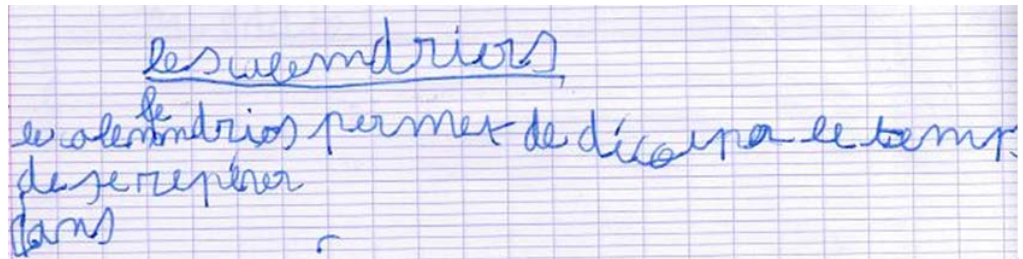 les calendriers
le
le calendries permet de découper le temp.
de se repérer
dans